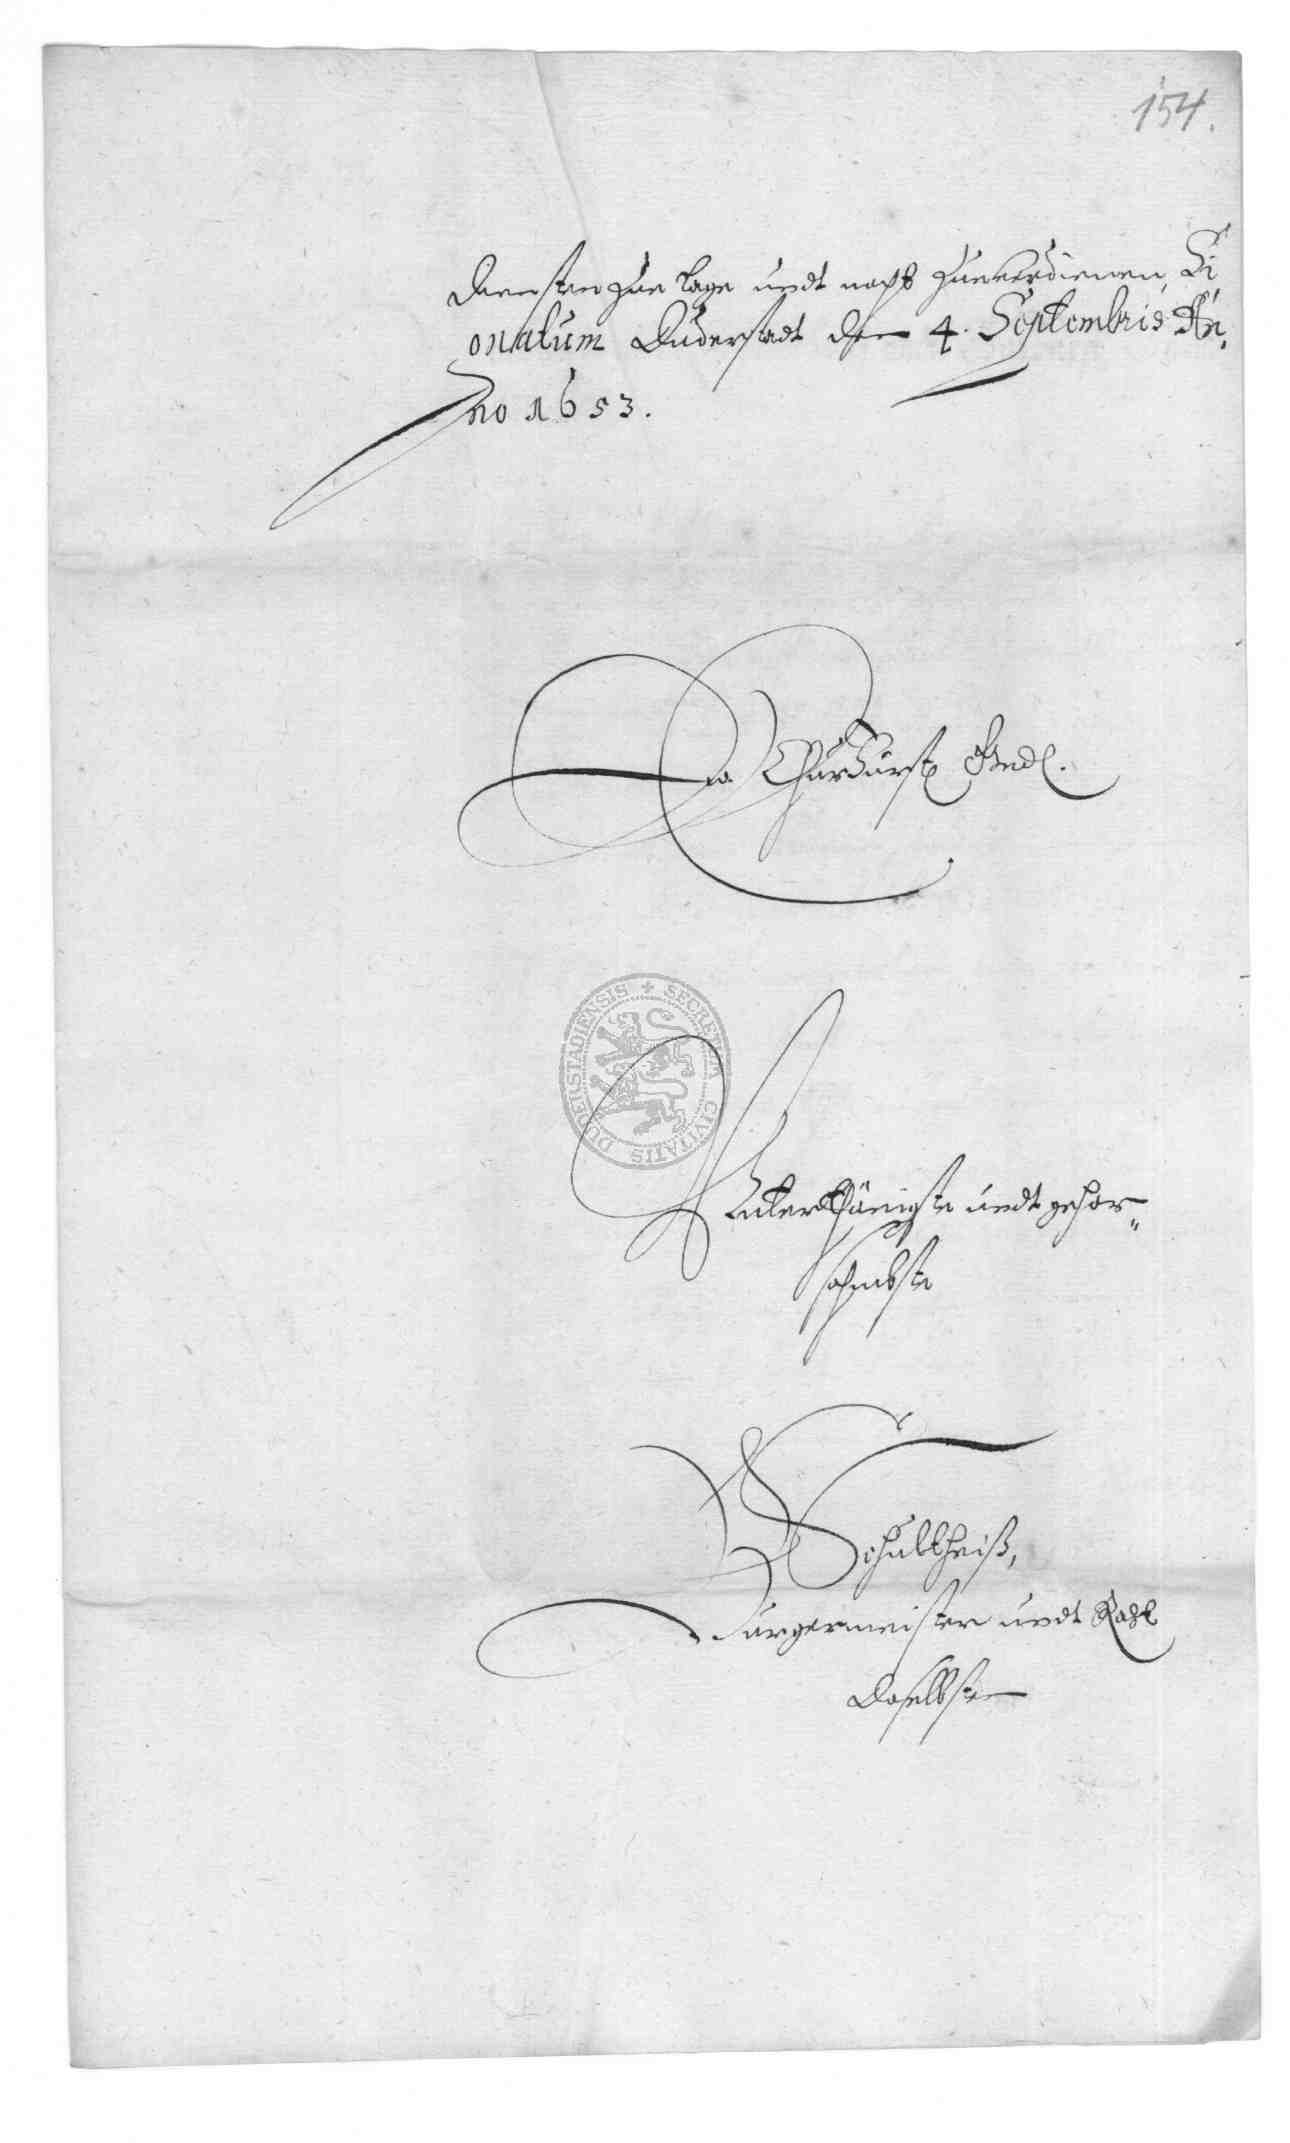 154.
diensten zue tage undt nacht zueverdienen, Si
onatum Duderstadt den 4. Septembris An,
no 1653.
Ew. Churfürstl. Gnd.
SECRETUM CIVITATIS DUDERSTADIENSIS
Unterthänigste undt gehor„
sahmbste
Schultheiß,
Burgermeister undt Raht
Daselbsten